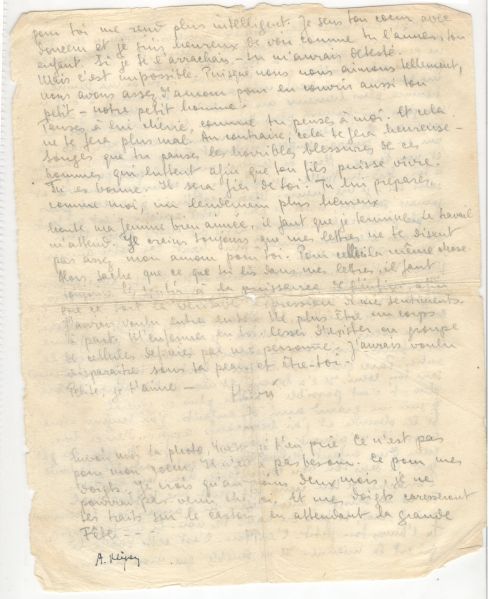 pour toi me rend plus intelligent. Je sens ton coeur avec
douceur et je suis heureux de voir comme tu l'aimes, ton
enfant. Si je te l'arrachais - tu m'aurais détesté.
Mais c'est impossible. Puisque nous nous aimons tellement,
nous avons assez d'amour pour en couvrir aussi ton
petit - notre petit homme.
Penses à lui chérie, comme tu penses à moi. Et cela
ne te fera plus mal. Au contraire, cela te fera heureuse -
songes que tu panses les horribles blessures de ces
hommes qui luttent afin que ton fils puisse vivre.
Tu es bonne. Il sera fier de toi! Tu lui prépares,
comme moi, un lendemain plus heureux
ma femme bien aimée, il faut que je termine. Le travail
m'attend. Je crains toujours que mes lettres ne te disent
pas assez mon amour pour toi. Pour la même chose
Alors sache que ce que tu lis dans mes lettres, il faut
à la puissance
que ce soit la expression de mes sentiments.
J'aurais voulu entre ne plus être un corps
à part. M'enfoncer en toi. cesser d'exister en groupe
de cellules par ma personne. J'aurais voulu
disparaître sous ta peau et être toi.
je t'aime -
Envoie moi ta photo, je t'en prie. Ce n'est pas
pour mon coeur. Il n'en a pas besoin. C'est pour mes
doigts. Je crois qu'au moins deux mois, je ne
pourrai pas venir Et mes doigts caresseront
tes traits sur le carton, en attendant la grande
Fête - - -
A.